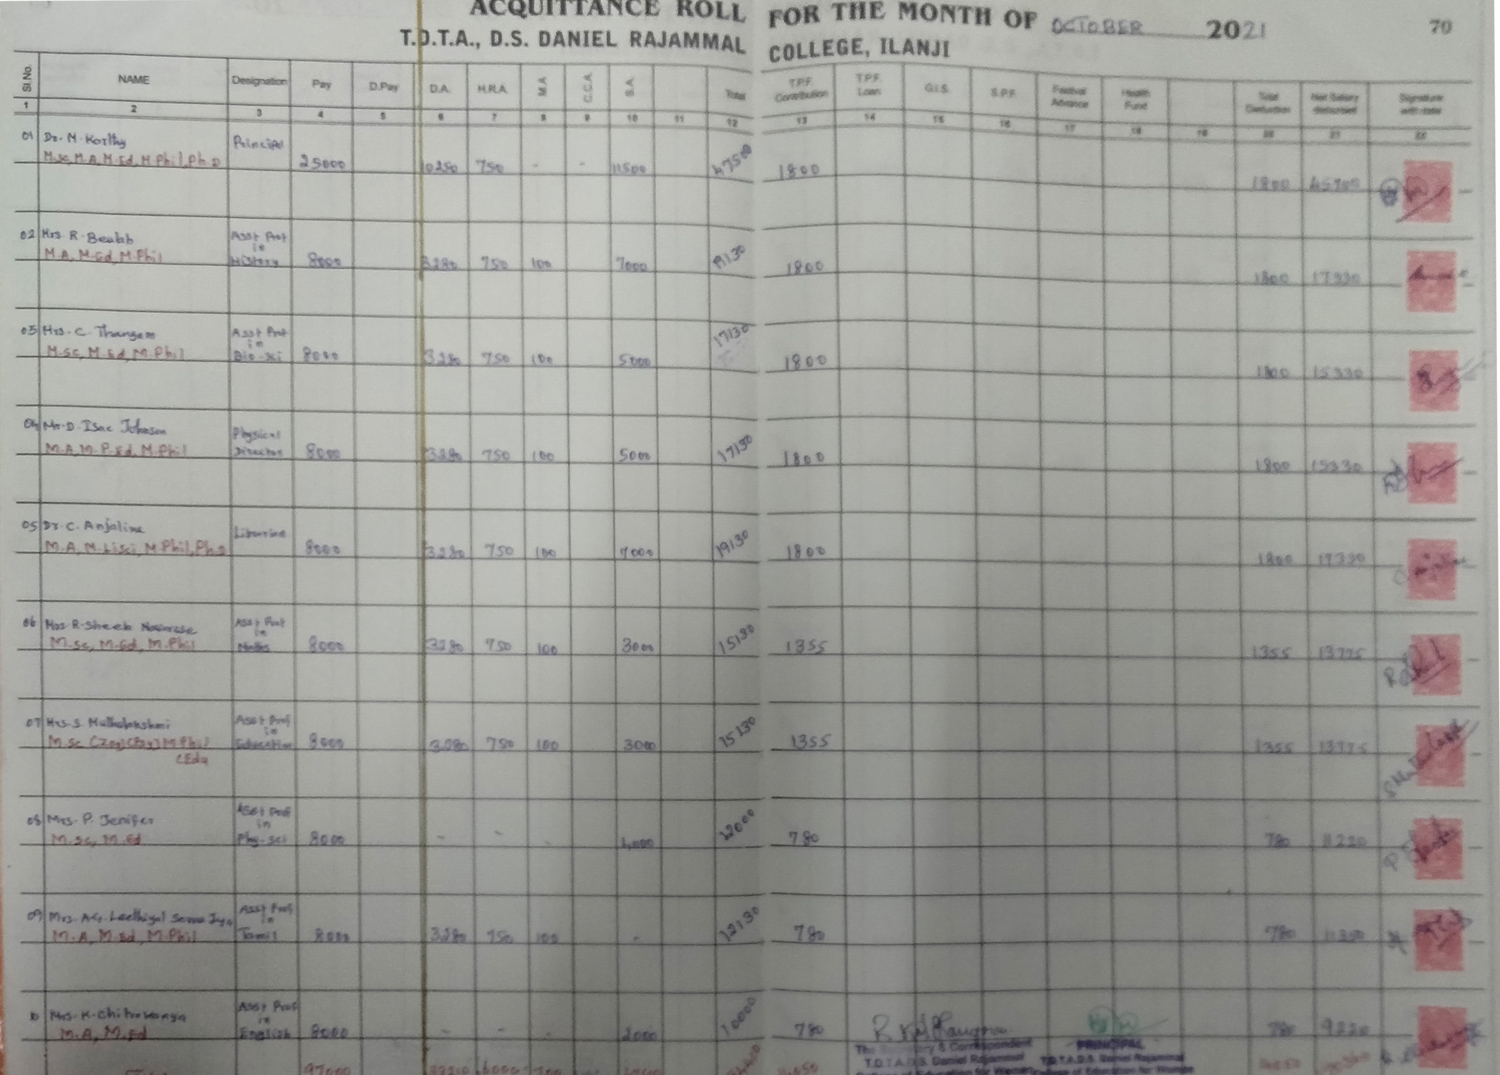 ACQUITTANCE ROLL FOR THE MONTH OF OCTOBER 2021 70
T.D.T.A., D.S. DANIEL RAJAMMAL COLLEGE, ILANJI
Sl.No. NAME Designation Pay D.Pay D.A. H.R.A. M.A. C.C.A. S.A. Total T.P.F. Contribution T.P.F. Loan G.I.S. S.P.F. Festival Advance Health Fund Total Deduction Net Salary disbursed Signature with date
1 2 3 4 5 6 7 8 9 10 11 12 13 14 15 16 17 18 19 20 21 22
01 Dr. M. Korthy Principal
M.Sc, M.A, M.Ed, M.Phil, Ph.D 25000 10250 750 - - 11500 47500 1800 1800 45700
02 Mrs. R. Beulah Asst Prof
in
M.A, M.Ed, M.Phil History 8000 3280 750 100 7000 19130 1800 1800 17330
03 Mrs. C. Thangam Asst Prof
in
M.Sc, M.Ed, M.Phil Bio-Sci 8000 3280 750 100 5000 17130 1800 1800 15330
04 Mr. D. Isac Johnson Physical
M.A, M.P.Ed, M.Phil Director 8000 3280 750 100 5000 17130 1800 1800 15330
05 Dr. C. Anjaline
M.A, M.Lisci, M.Phil, Ph.D 8000 3280 750 100 7000 19130 1800 1800 17330
06 R. Sheeba Asst Prof
in
M.Sc, M.Ed, M.Phil Maths 8000 3280 750 100 3000 15130 1355 1355 13775
07 Mrs. S. Muthulakshmi Asst Prof
in
M.Sc (Zoo) (Psy) M.Phil Education 8000 3280 750 100 3000 15130 1355 1355 13775
(Edu)
08 Mrs. P. Jenifer Asst Prof
in
M.Sc, M.Ed Phy-Sci 8000 - - - 4,000 12000 780 780 11220
09 Mrs. Asst Prof
in
M.A, M.Ed, M.Phil Tamil 8000 3280 750 100 - 12130 780 780 11350
10 Mrs. K. Asst Prof
in
M.A, M.Ed English 8000 - - - 2000 10000 780 780 9220
The Secretary & Correspondent PRINCIPAL
T.D.T.A. D.S. Daniel Rajammal T.D.T.A. D.S. Daniel Rajammal
College of Education for Women College of Education for Women
97000